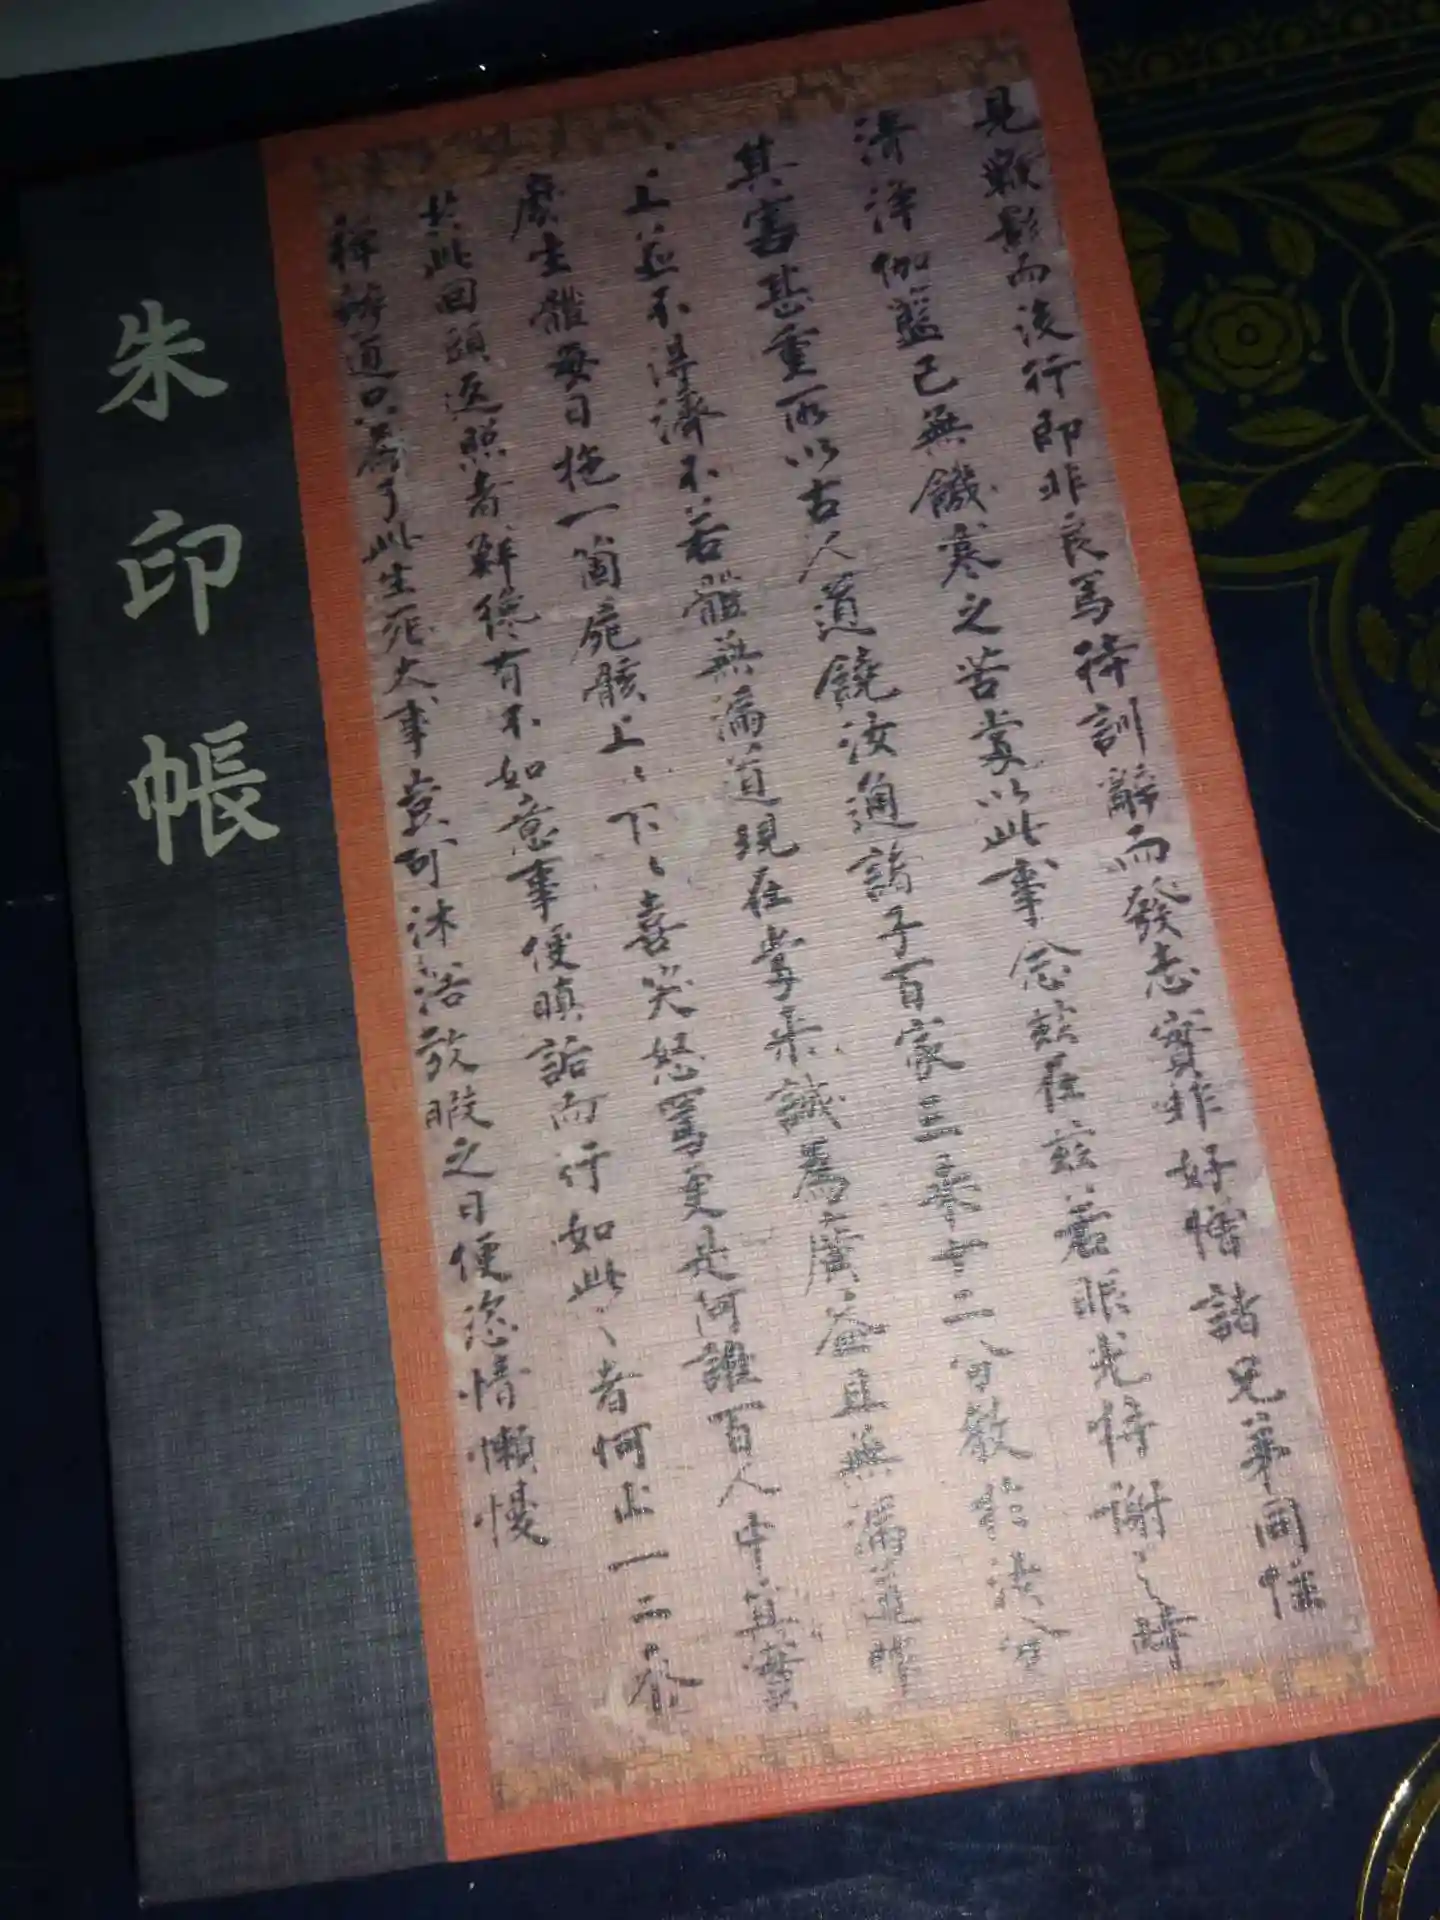 朱印帳
見鞭影而後行即非良馬待訓辭而發志實非好僧諸兄弟同住
清淨伽藍已無饑寒之苦當以此事念茲在茲若眼光将謝之時
其害甚重所以古人道饒汝通諸子百家三乗十二分教於汝分
上並不得濟不若體無漏道現在當来誠為廣益且無漏道昨
麼生體每日拖一箇屍骸上〻下〻喜笑怒罵更是何誰百人中真實
於此回頭返照者鮮纔有不如意事便瞋詬而行如此〻者何止一二参
禅辨道只為了此生死大事豈可沐浴放暇之日便恣情懶慢